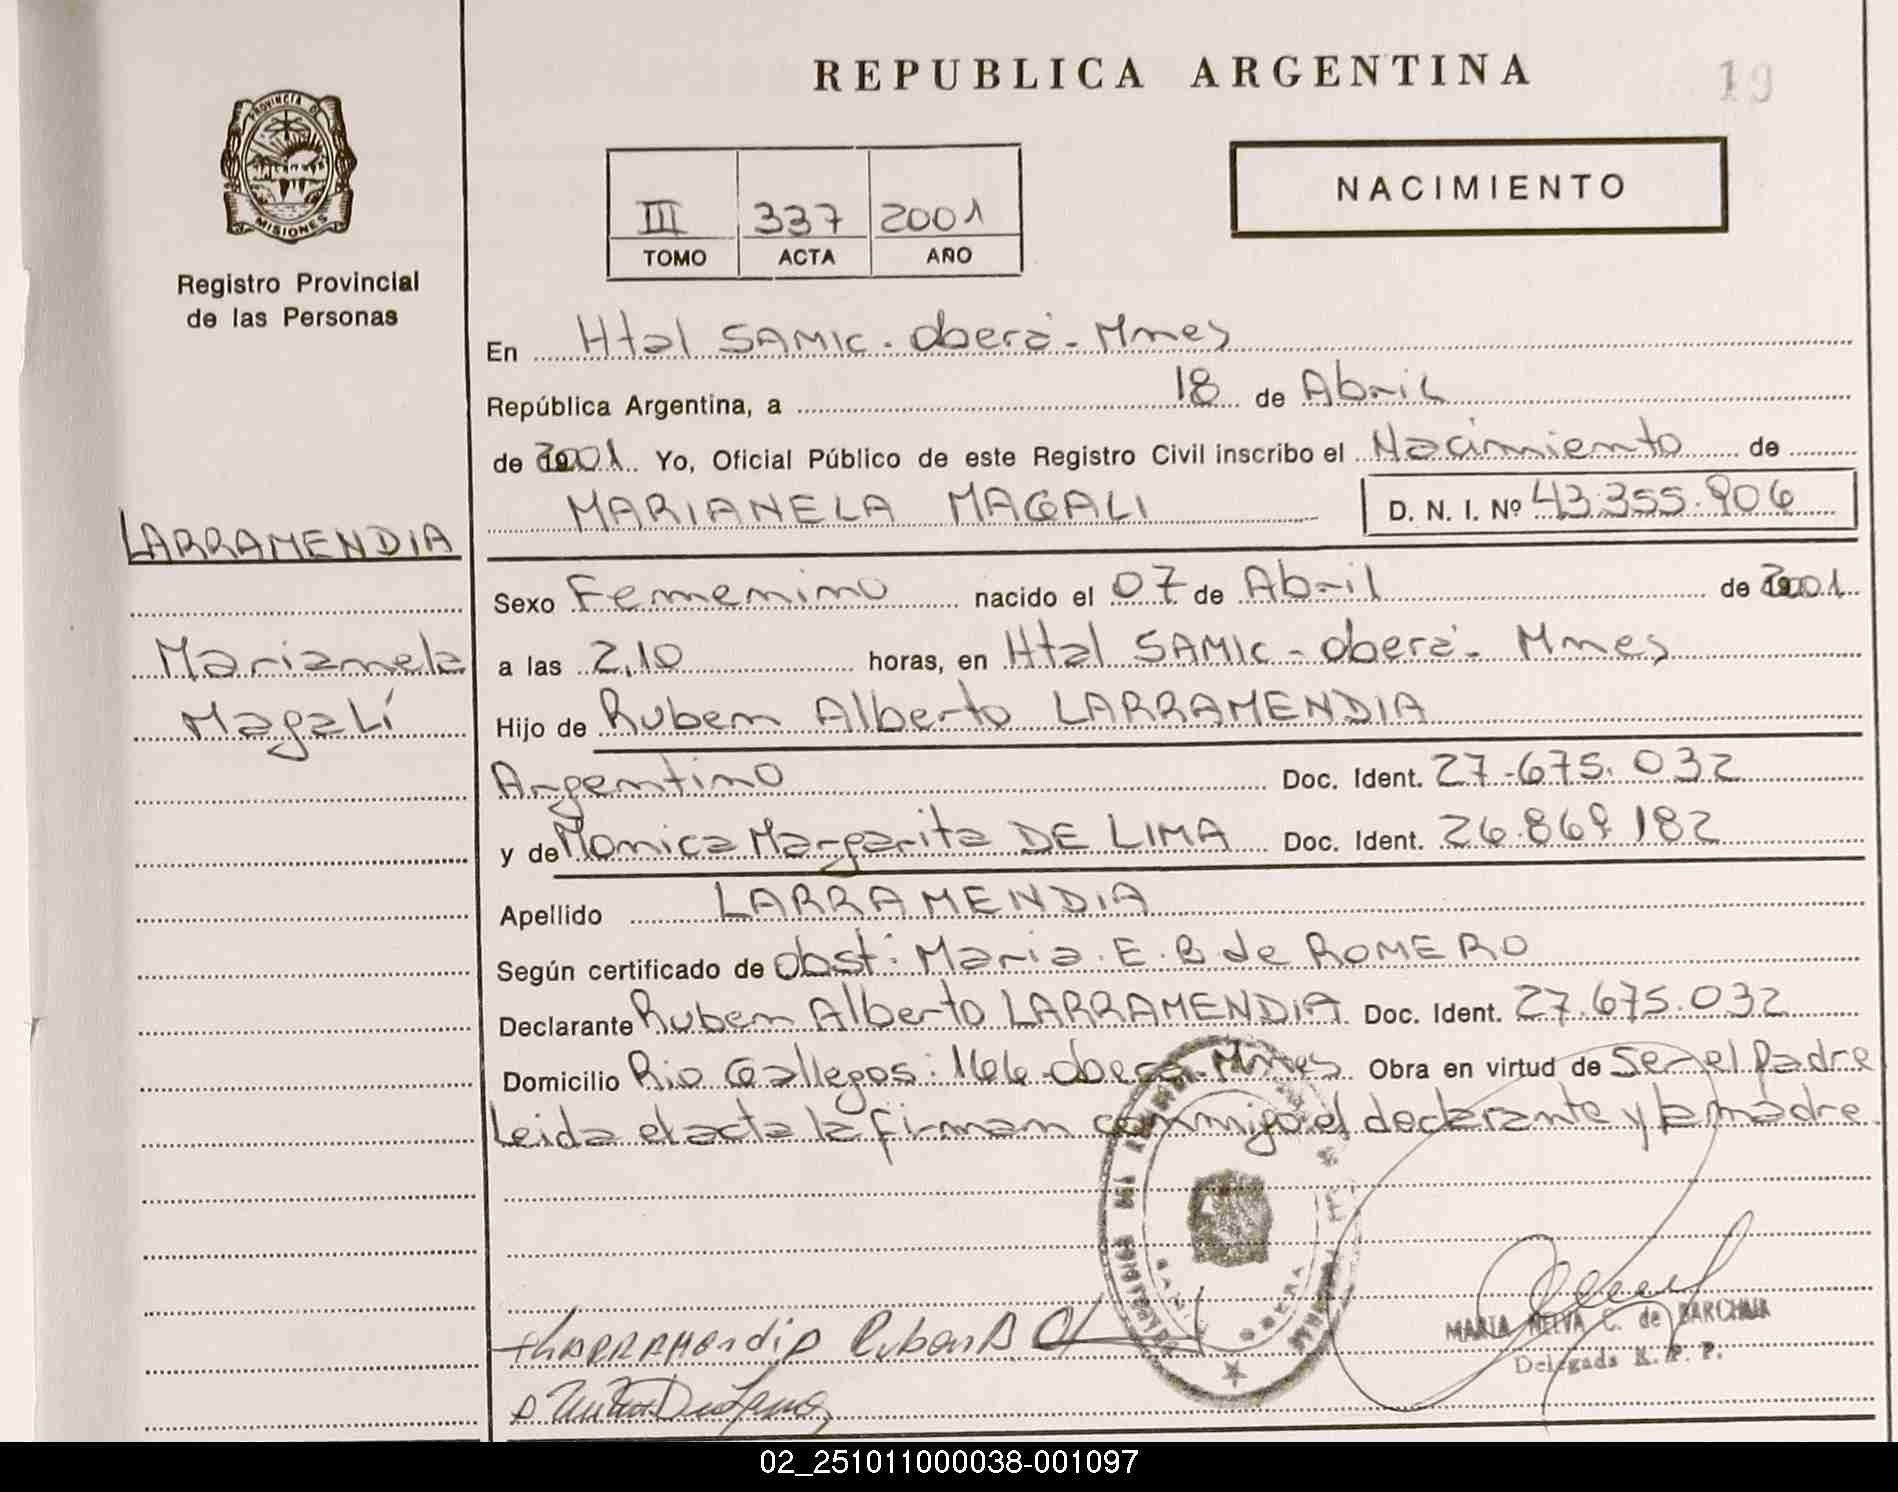 REPUBLICA ARGENTINA
19
PROVINCIA DE MISIONES
Registro Provincial
de las Personas
NACIMIENTO
III 337 2001
TOMO ACTA AÑO
En Htal SAMIC - Oberá - Mnes
República Argentina, a 18 de Abril
de 2001. Yo, Oficial Público de este Registro Civil inscribo el Nacimiento de
MARIANELA MAGALI D. N. I. Nº 43.355.906
LARRAMENDIA
Marianela
Magalí
Sexo Femenino nacido el 07 de Abril de 2001
a las 2,10 horas, en Htal SAMIC - Oberá - Mnes
Hijo de Ruben Alberto LARRAMENDIA
Argentino Doc. Ident. 27.675.032
y de Monica Margarita DE LIMA Doc. Ident. 26.869.182
Apellido LARRAMENDIA
Según certificado de Obst: Maria E. B de ROMERO
Declarante Ruben Alberto LARRAMENDIA Doc. Ident. 27.675.032
Domicilio Rio Gallegos: 166 - Oberá - Mnes Obra en virtud de Ser el Padre
Leida el acta la firman conmigo el declarante y la madre
LARRAMENDIA Ruben A
OBERA
MARIA NEIVA C. de BARCHUK
Delegada R. P. P.
02_251011000038-001097